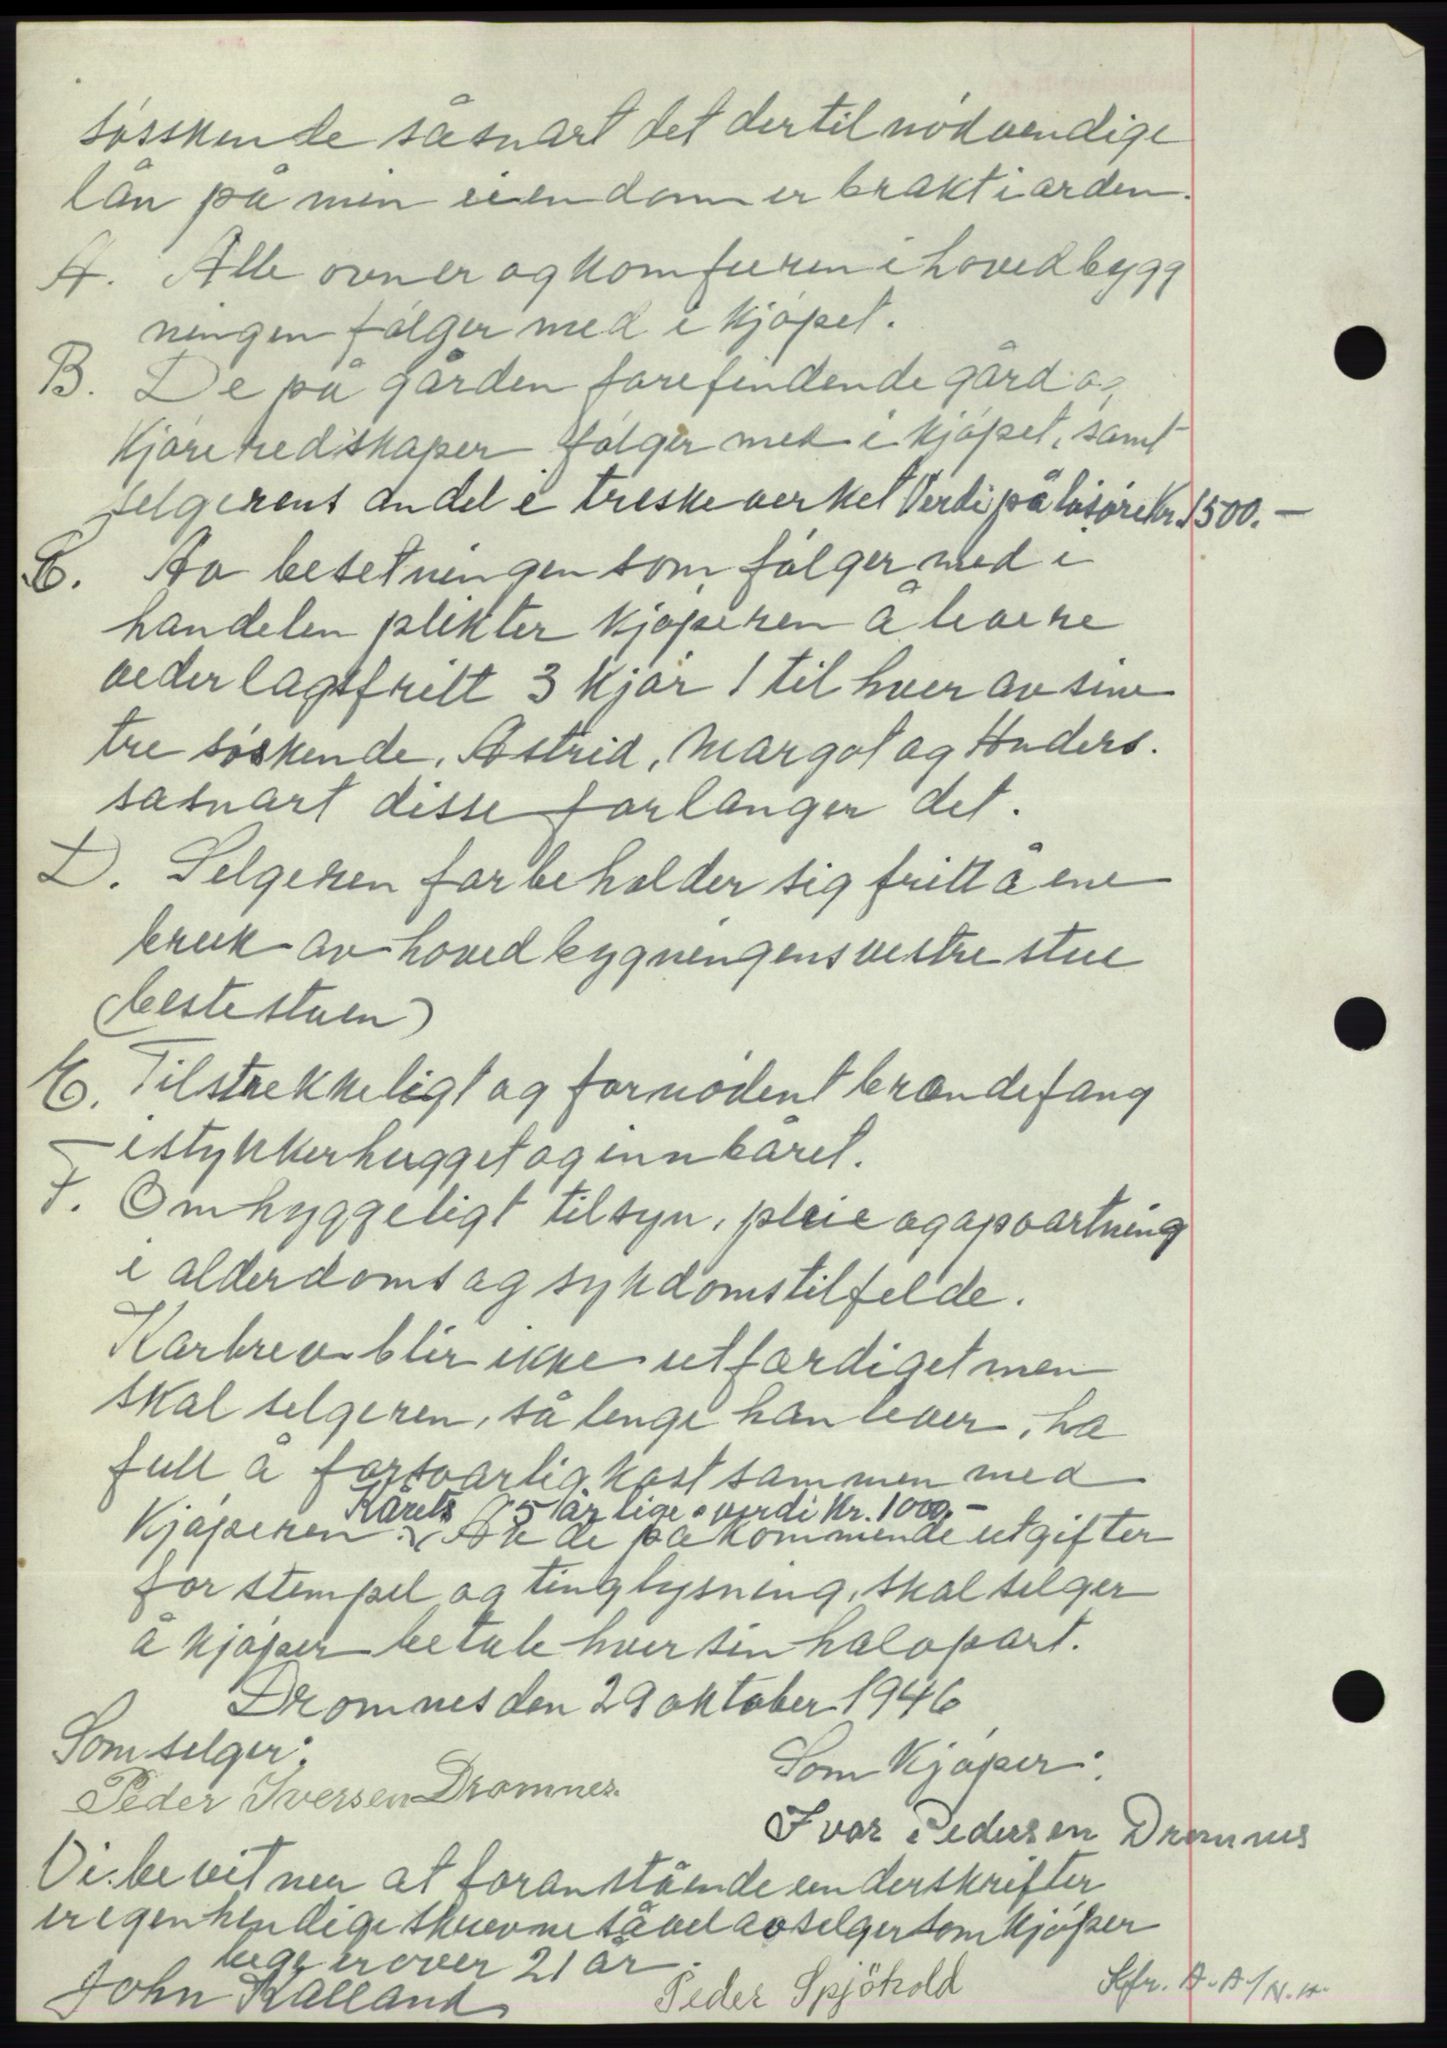 søsskende såsnart det dertil nødvendige
lån på min eiendom er brakt i orden.
A. Alle ovner og komfuren i hovedbygg
ningen følger med i kjøpet.
B. De på gården forefindende gård og
kjøreredskaper følger med i kjøpet, samt
selgerens andel i treskeverket Verdi på løsøre Kr. 1500.—
C. Av besetningen som følger med i
handelen plikter kjøperen å levere
vederlagsfritt 3 kjør 1 til hver av sine
tre søskende, Astrid, Margot og Anders.
såsnart disse forlanger det.
D. Selgeren forbeholder sig fritt å ene
bruk av hovedbygningens vestre stue
(bestestuen)
E. Tilstrekkeligt og fornødent brændefang
istykkerhugget og innbåret.
F. Omhyggeligt tilsyn, pleie og opvartning
i alderdoms og sykdomstilfelde.
Kårbrev blir ikke utfærdiget men
skal selgeren, så lenge han lever, ha
full å forsvarlig kost sammen med
Kårets 5 årlige verdi Kr. 1000.—
kjøperen. Alle de påkommende utgifter
for stempel og tinglysning, skal selger
å kjøper betale hver sin halvpart.
Dromnes den 29 oktober 1946
Som selger:
Som Kjøper:
Peder Iversen Dromnes.
Ivar Pedersen Dromnes
Vi bevitner at foranstående underskrifter
er egenhendige skrevne såvel av selger som kjøper
begge er over 21 år.
John Kalland
Peder Spjøtvold
Sfr. A.A./N.H.